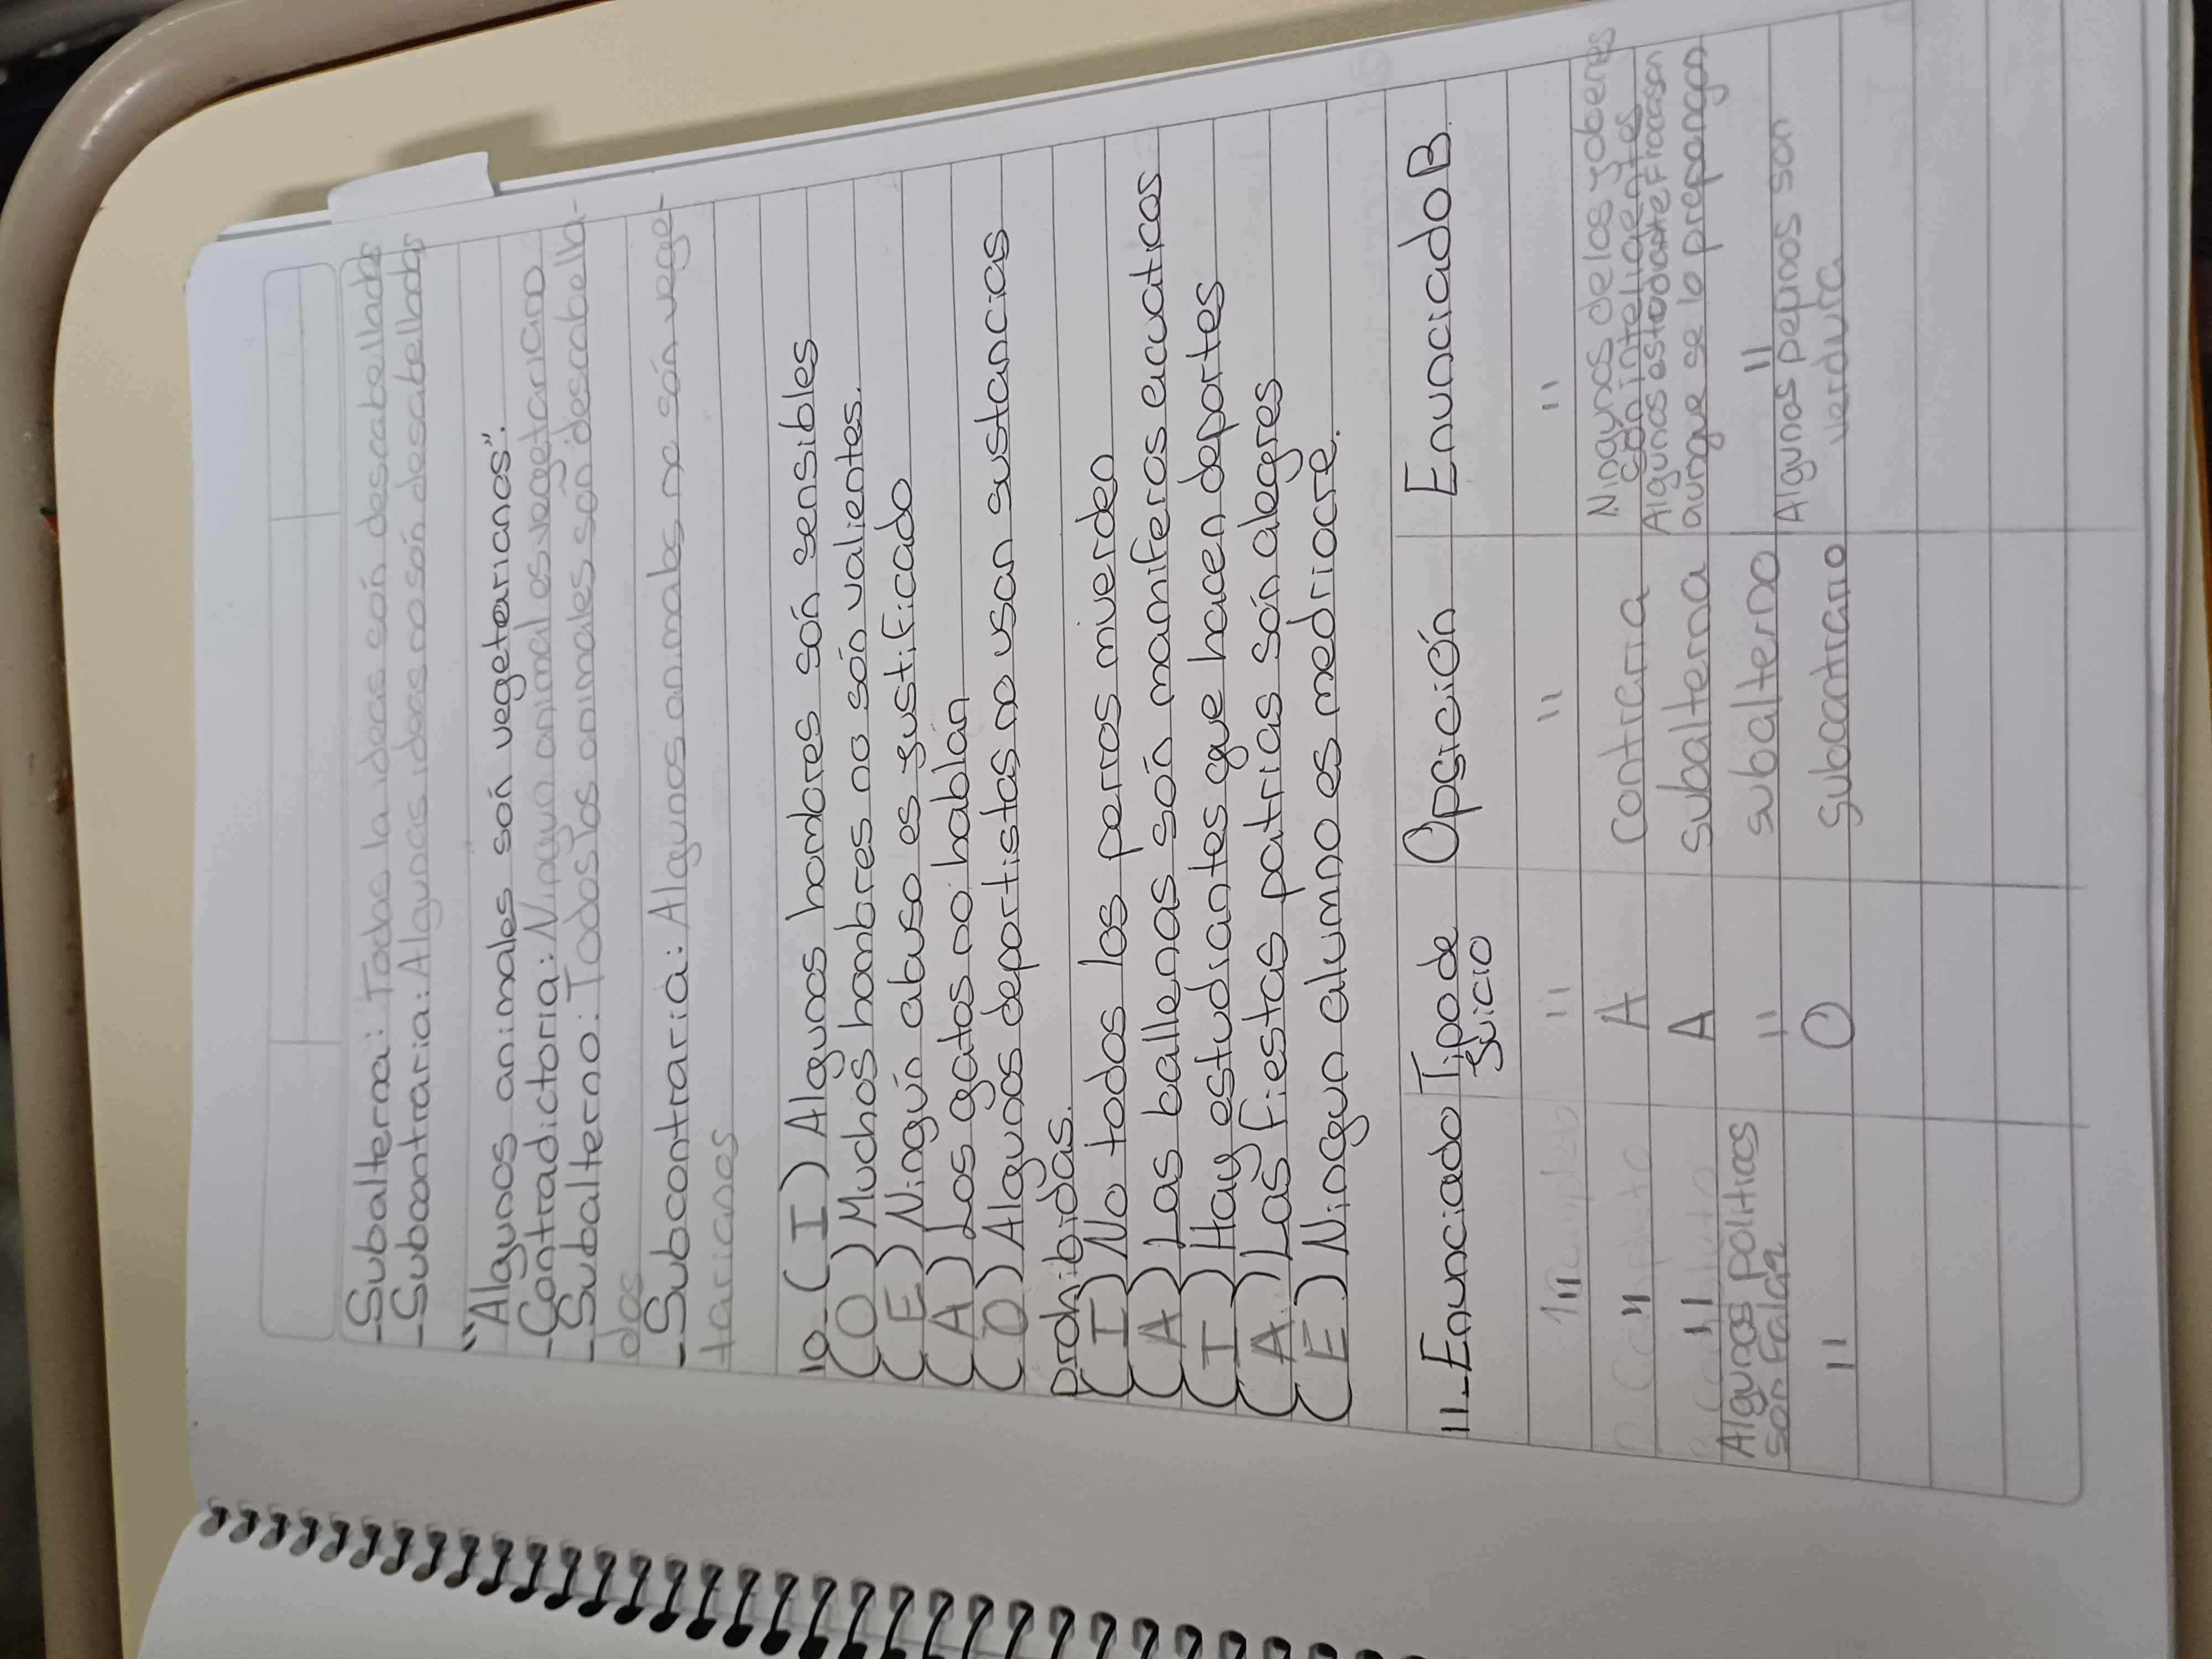 -Subalterna: Todas la ideas són descabelladas
-Subcontraria: Algunas ideas no són descabelladas
"Algunos animales són vegetarianos".
-Contradictoria: Ningún animal es vegetariano
-Subalterno: Todos los animales són descabella-
dos
-Subcontraria: Algunos animales no són vege-
tarianos
10-(I) Algunos hombres són sensibles
(O) Muchos hombres no són valientes.
(E) Ningún abuso es justificado
(A) Los gatos no hablan
(O) Algunos deportistas no usan sustancias
prohibidas.
(I) No todos los perros muerden
(A) Las ballenas són mamiferos acuaticos
(I) Hay estudiantes que hacen deportes
(A) Las fiestas patrias són alegres
(E) Ningun alumno es mediocre.
11-Enunciado Tipo de Opsición Enunciado B
Juicio
" " " "
" A Contraria Ningunos de los yobenes
són inteligentes
" A subalterna Algunos estudiante Fracasan
aunque se lo prepongan
Algunos politicos " subalterno "
són
" O Subcontrario Algunos pepinos son
verdura